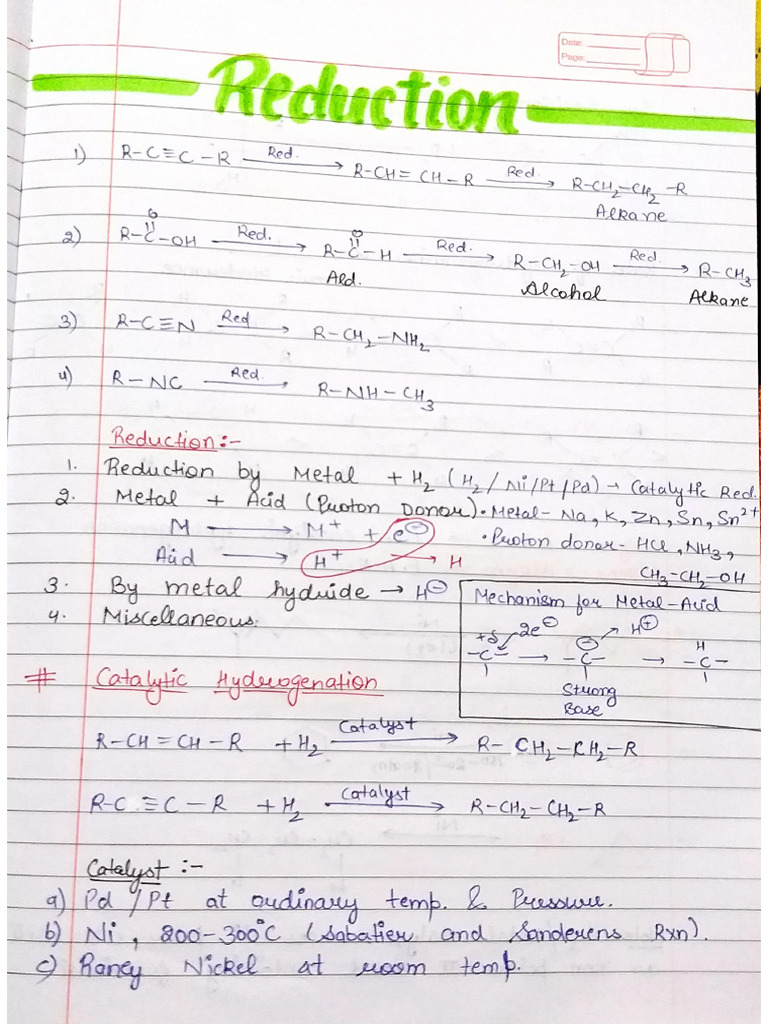 Date:
Page:
Reduction
1) R-C≡C-R —Red.→ R-CH=CH-R —Red.→ R-CH₂-CH₂-R
Alkane
2) R-C(=O)-OH —Red.→ R-C(=O)-H —Red.→ R-CH₂-OH —Red.→ R-CH₃
Ald. Alcohol Alkane
3) R-C≡N —Red→ R-CH₂-NH₂
4) R-NC —Red.→ R-NH-CH₃
Reduction:-
1. Reduction by Metal + H₂ (H₂/Ni/Pt/Pd) → Catalytic Red.
2. Metal + Acid (Proton Donor) • Metal- Na, K, Zn, Sn, Sn²⁺
M → M⁺ + e⊖ • Proton donor- HCl, NH₃,
Acid → H⁺ → H CH₃-CH₂-OH
3. By metal hydride → H⊖
4. Miscellaneous.
Mechanism for Metal-Acid
+δ 2e⊖ ⊖ H⊕ H
-C= → -C- → -C-
Strong
Base
# Catalytic Hydrogenation
R-CH=CH-R + H₂ —Catalyst→ R-CH₂-CH₂-R
R-C≡C-R + H₂ —Catalyst→ R-CH₂-CH₂-R
Catalyst :-
a) Pd/Pt at ordinary temp. & Pressure.
b) Ni, 200-300°C (Sabatier and Sanderens Rxn).
c) Raney Nickel at room temp.